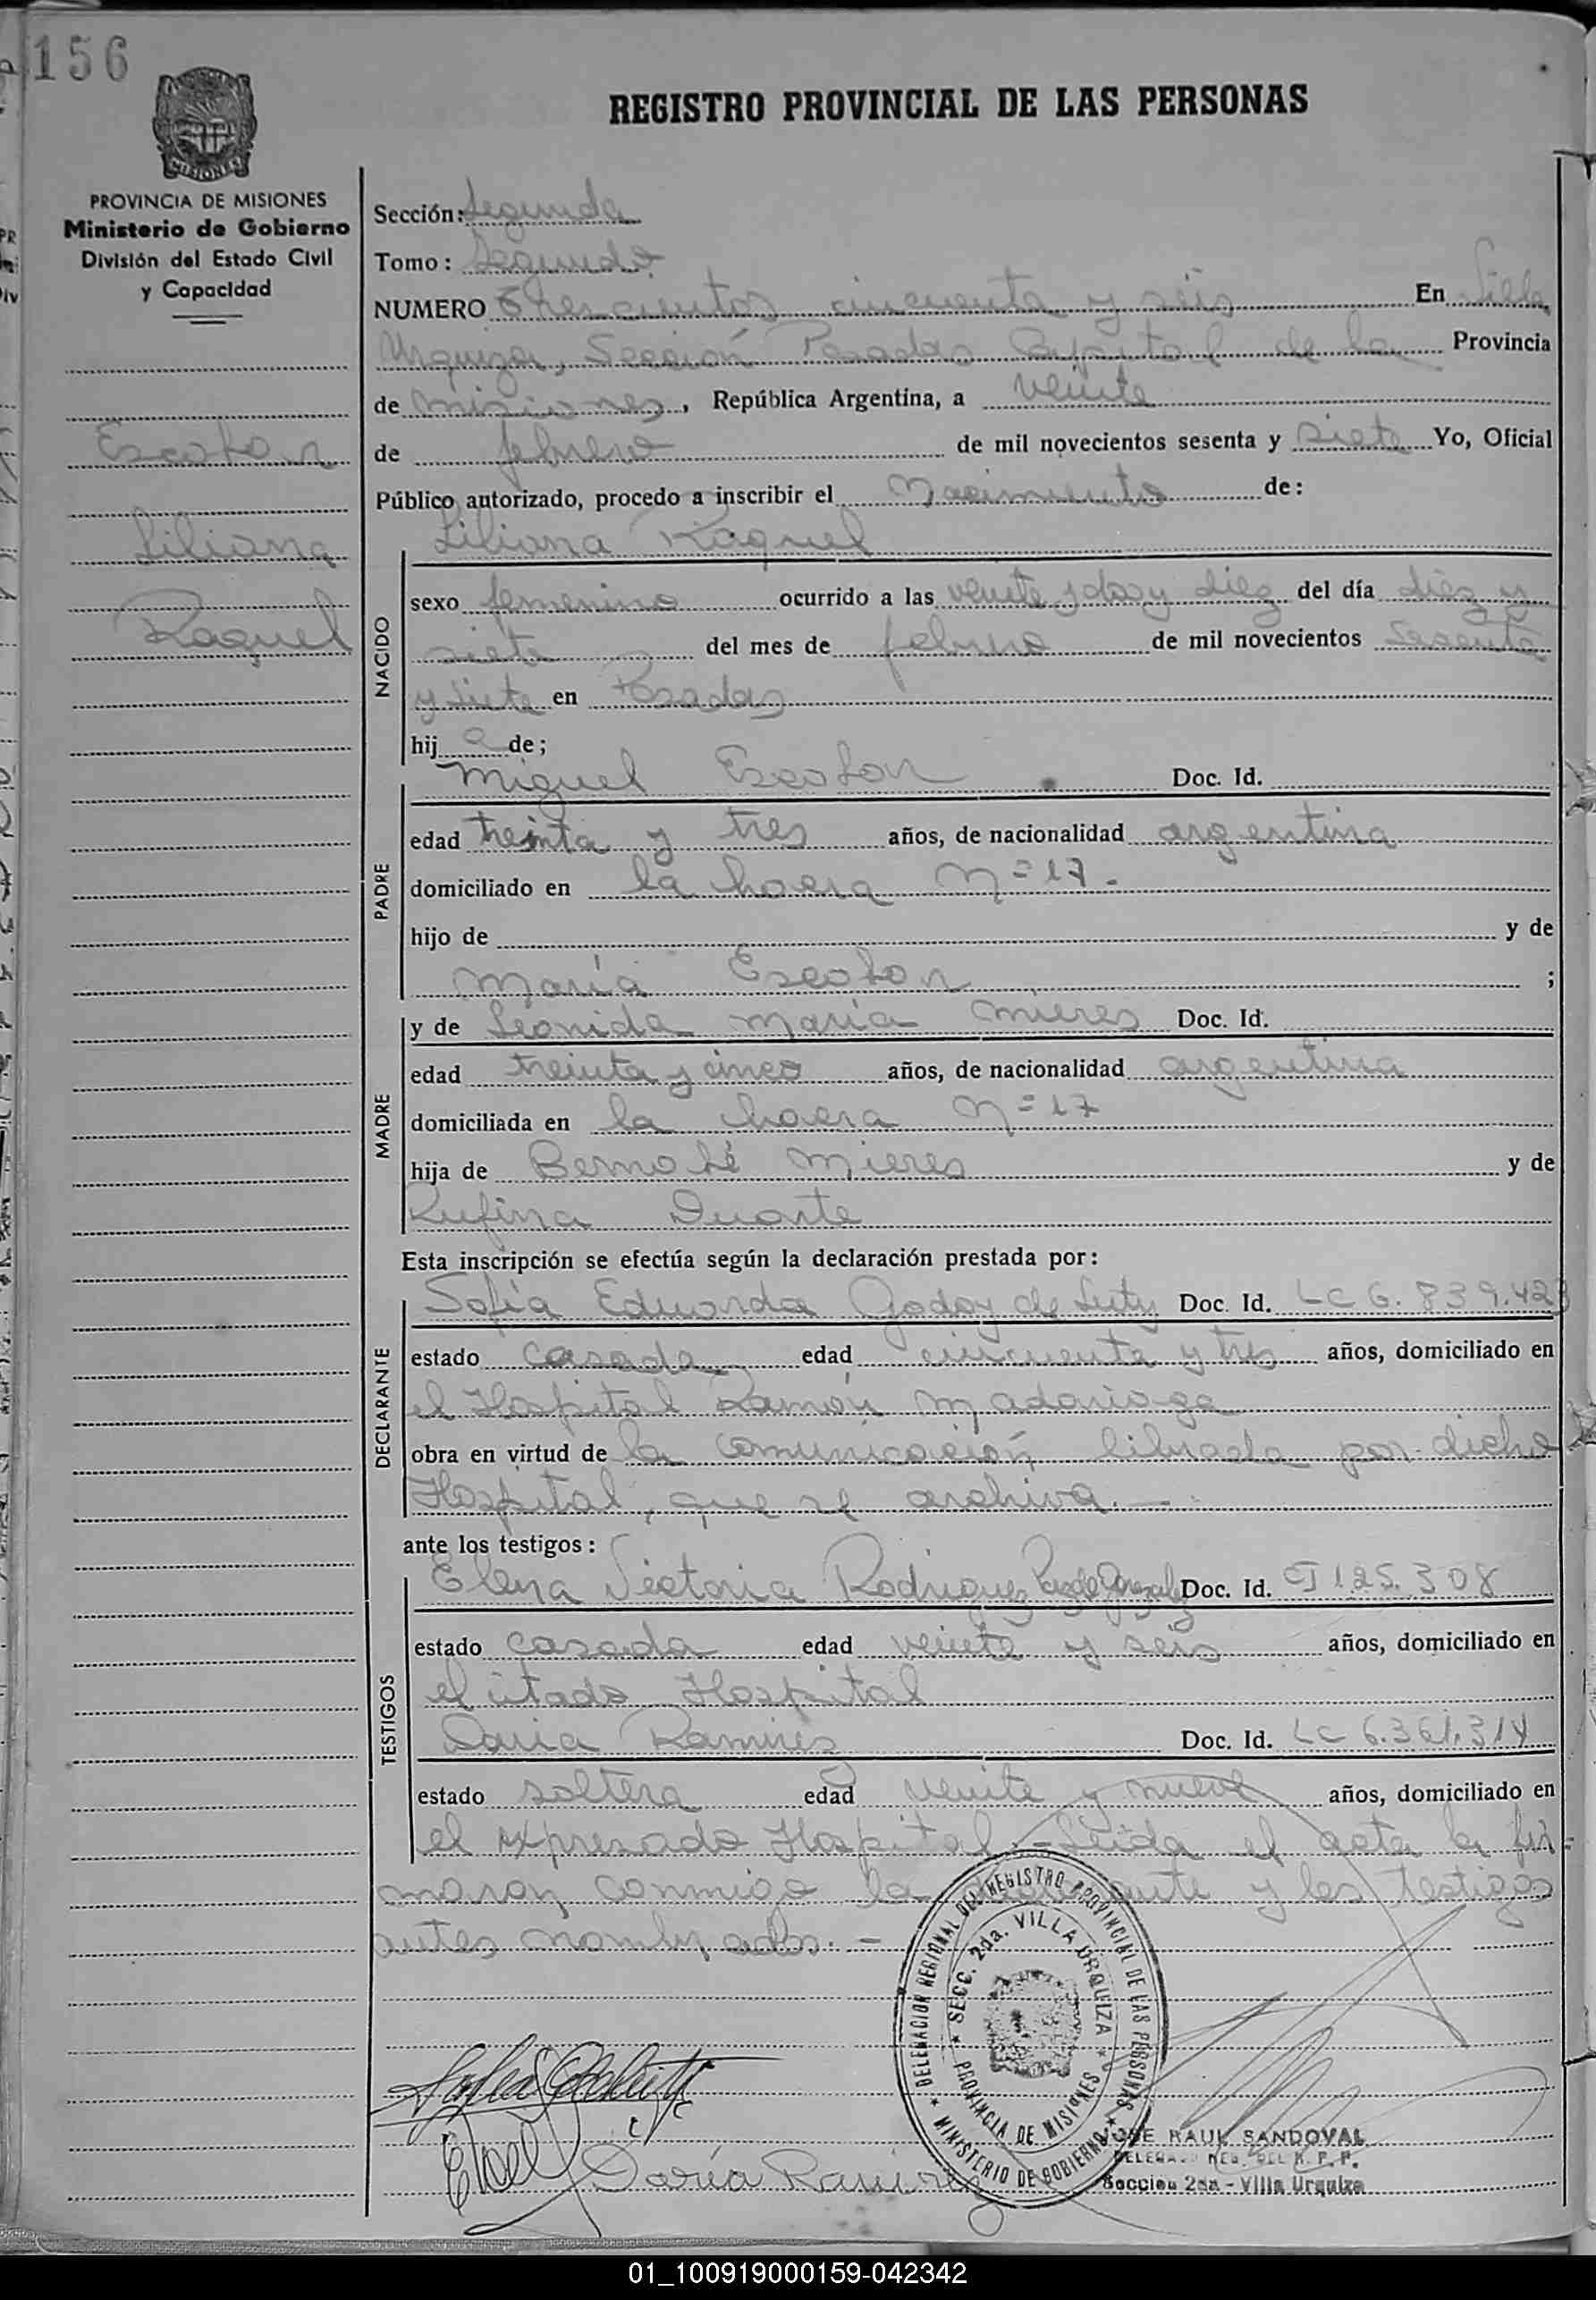 156
REGISTRO PROVINCIAL DE LAS PERSONAS
MISIONES
PROVINCIA DE MISIONES
Ministerio de Gobierno
División del Estado Civil
y Capacidad
Escobar
Liliana
Raquel
Sección: Segunda
Tomo: Segundo
NUMERO Trescientos cincuenta y seis En Villa
Urquiza, Sección Posadas Capital de la Provincia
de Misiones, República Argentina, a veinte
de febrero de mil novecientos sesenta y siete Yo, Oficial
Público autorizado, procedo a inscribir el Nacimiento de:
NACIDO
Liliana Raquel
sexo femenino ocurrido a las veinte y dos y diez del día diez y
siete del mes de febrero de mil novecientos sesenta
y siete en Posadas
hij a de;
PADRE
Miguel Escobar Doc. Id.
edad treinta y tres años, de nacionalidad argentina
domiciliado en la chacra N=17.
hijo de y de
María Escobar ;
MADRE
y de Leonida María Mieres Doc. Id.
edad treinta y cinco años, de nacionalidad argentina
domiciliada en la chacra N=17
hija de Bernabé Mieres y de
Rufina Duarte
Esta inscripción se efectúa según la declaración prestada por:
DECLARANTE
Sofía Eduarda Godoy de Doc. Id. LC 6.839.423
estado casada edad cincuenta y tres años, domiciliado en
el Hospital Ramón Madariaga
obra en virtud de la comunicación librada por dicho
Hospital, que se archiva.—
ante los testigos:
TESTIGOS
Elena Victoria Rodriguez Doc. Id. CI 125.308
estado casada edad veinte y seis años, domiciliado en
el citado Hospital
Daria Ramirez Doc. Id. LC 6.361.314
estado soltera edad veinte y nueve años, domiciliado en
el expresado Hospital.- Leida el acta la fir-
maron conmigo la declarante y los testigos
antes nombrados.-
DELEGACION REGIONAL DEL REGISTRO PROVINCIAL DE LAS PERSONAS
MINISTERIO DE GOBIERNO
SECC. 2da. VILLA URQUIZA
PROVINCIA DE MISIONES
Daría Ramirez
JOSE RAUL SANDOVAL
DELEGADO REG. DEL R. P. P.
Seccion 2da - Villa Urquiza
01_100919000159-042342